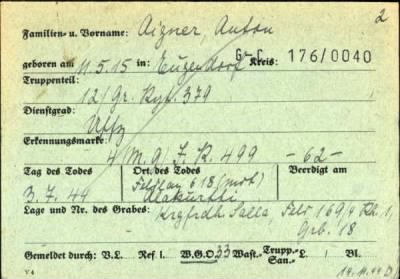 2
Familien- u. Vorname: Aizner, Anton
geboren am 11.5.15 in: Euzendorf Kreis: G-C 176/0040
Truppenteil:
12/Gr. Rgt. 379
Dienstgrad:
Uffz
Erkennungsmarke:
4/M.G.J.R. 499 -62-
Tag des Todes Ort des Todes Beerdigt am
3.7.44 Feldlaz 618 (mot)
Alakurtti
Lage und Nr. des Grabes: Krgfrdh. Salla, Feld 169, 4 Rh. 1,
Grb. 18
Gemeldet durch: V.L. Ref i. W.G.O. 33 Wast.- Trupp.- San.-
V 4 14.11.44